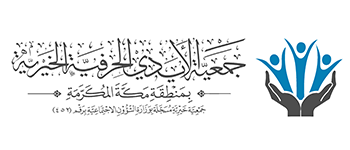 جمعية الأيدي الحرفية الخيرية
بمنطقة مكة المكرمة
جمعية خيرية مسجلة بوزارة الشؤون الاجتماعية برقم (٤٥٦)